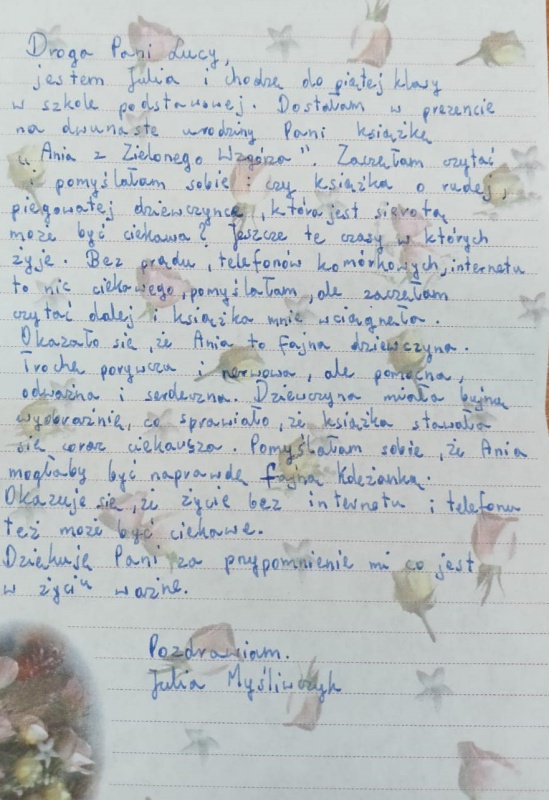 Droga Pani Lucy,
jestem Julia i chodzę do piątej klasy
w szkole podstawowej. Dostałam w prezencie
na dwunaste urodziny Pani książkę
„Ania z Zielonego Wzgórza". Zaczęłam czytać
i pomyślałam sobie: czy książka o rudej,
piegowatej dziewczynce, która jest sierotą
może być ciekawa? Jeszcze te czasy w których
żyje. Bez prądu, telefonów komórkowych, internetu
to nic ciekawego, pomyślałam, ale zaczęłam
czytać dalej i książka mnie wciągnęła.
Okazało się, że Ania to fajna dziewczyna.
Trochę porywcza i nerwowa, ale pomocna,
odważna i serdeczna. Dziewczyna miała bujną
wyobraźnię, co sprawiało, że książka stawała
się coraz ciekawsza. Pomyślałam sobie, że Ania
mogłaby być naprawdę fajną koleżanką.
Okazuje się, że życie bez internetu i telefonu
też może być ciekawe.
Dziękuję Pani za przypomnienie mi co jest
w życiu ważne.
Pozdrawiam.
Julia Myśliwczyk